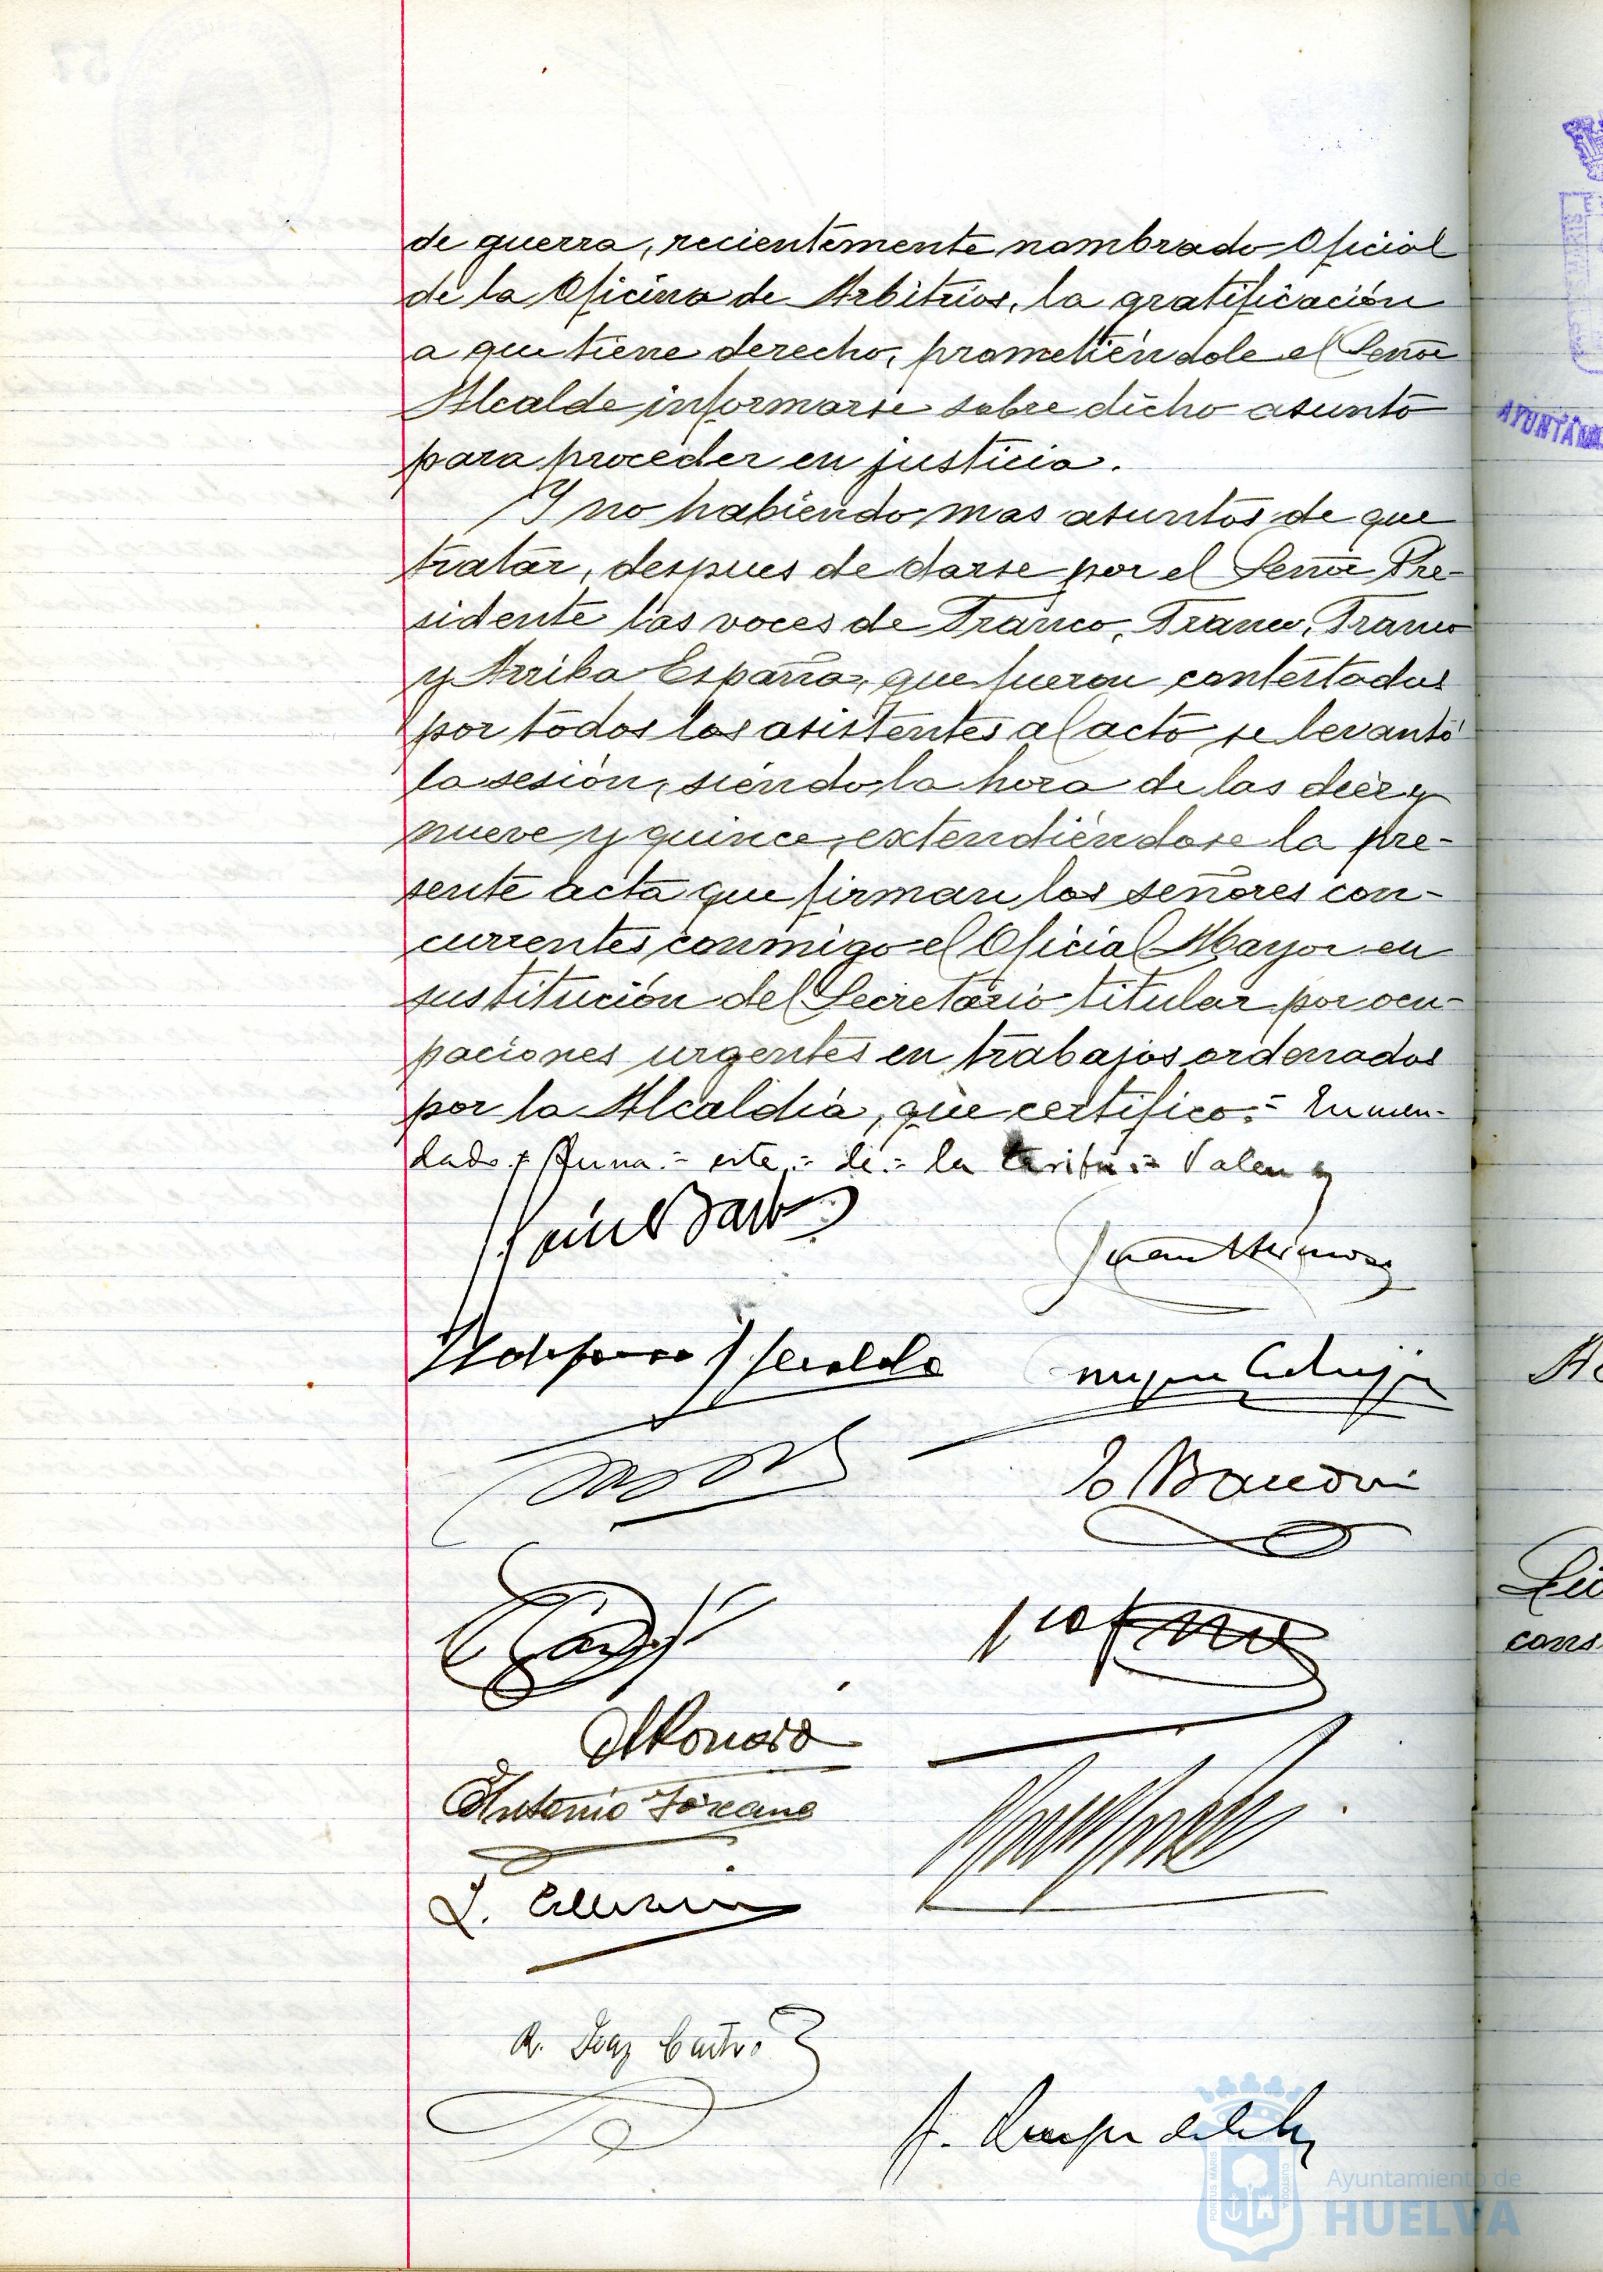 de guerra, recientemente nombrado Oficial
de la Oficina de Arbitrios, la gratificación
a que tiene derecho, prometiéndole el Señor
Alcalde informarse sobre dicho asunto
para proceder en justicia.
Y no habiendo mas asuntos de que
tratar, despues de darse por el Señor Pre-
sidente las voces de Franco, Franco, Franco
y Arriba España, que fueron contestadas
por todos los asistentes al acto se levantó
la sesión, siendo la hora de las diez y
nueve y quince, extendiéndose la pre-
sente acta que firman los señores con-
currentes conmigo el Oficial Mayor en
sustitución del Secretario titular por ocu-
paciones urgentes en trabajos ordenados
por la Alcaldía, que certifico.= Enmen-
dado = = este = de = la = Valen
Juan
Antonio Toscano
R. Diaz Castro
AYUNTAM
cons
Ayuntamiento de
HUELVA